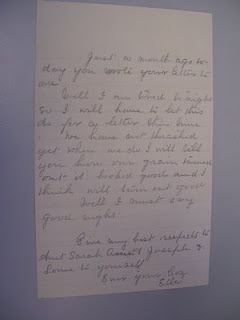 Just a month ago to-
day you wrote your letter to
me
Well I am tired to night
so I will have to let this
do for a letter this time
We have not thrashed
yet when we do I will tell
you how our grain turned
out it looked good and I
think will turn out good
Well I must say
good night.
Give my best respects to
Aunt Sarah Joseph &
Some to yourself
Ever your Coz